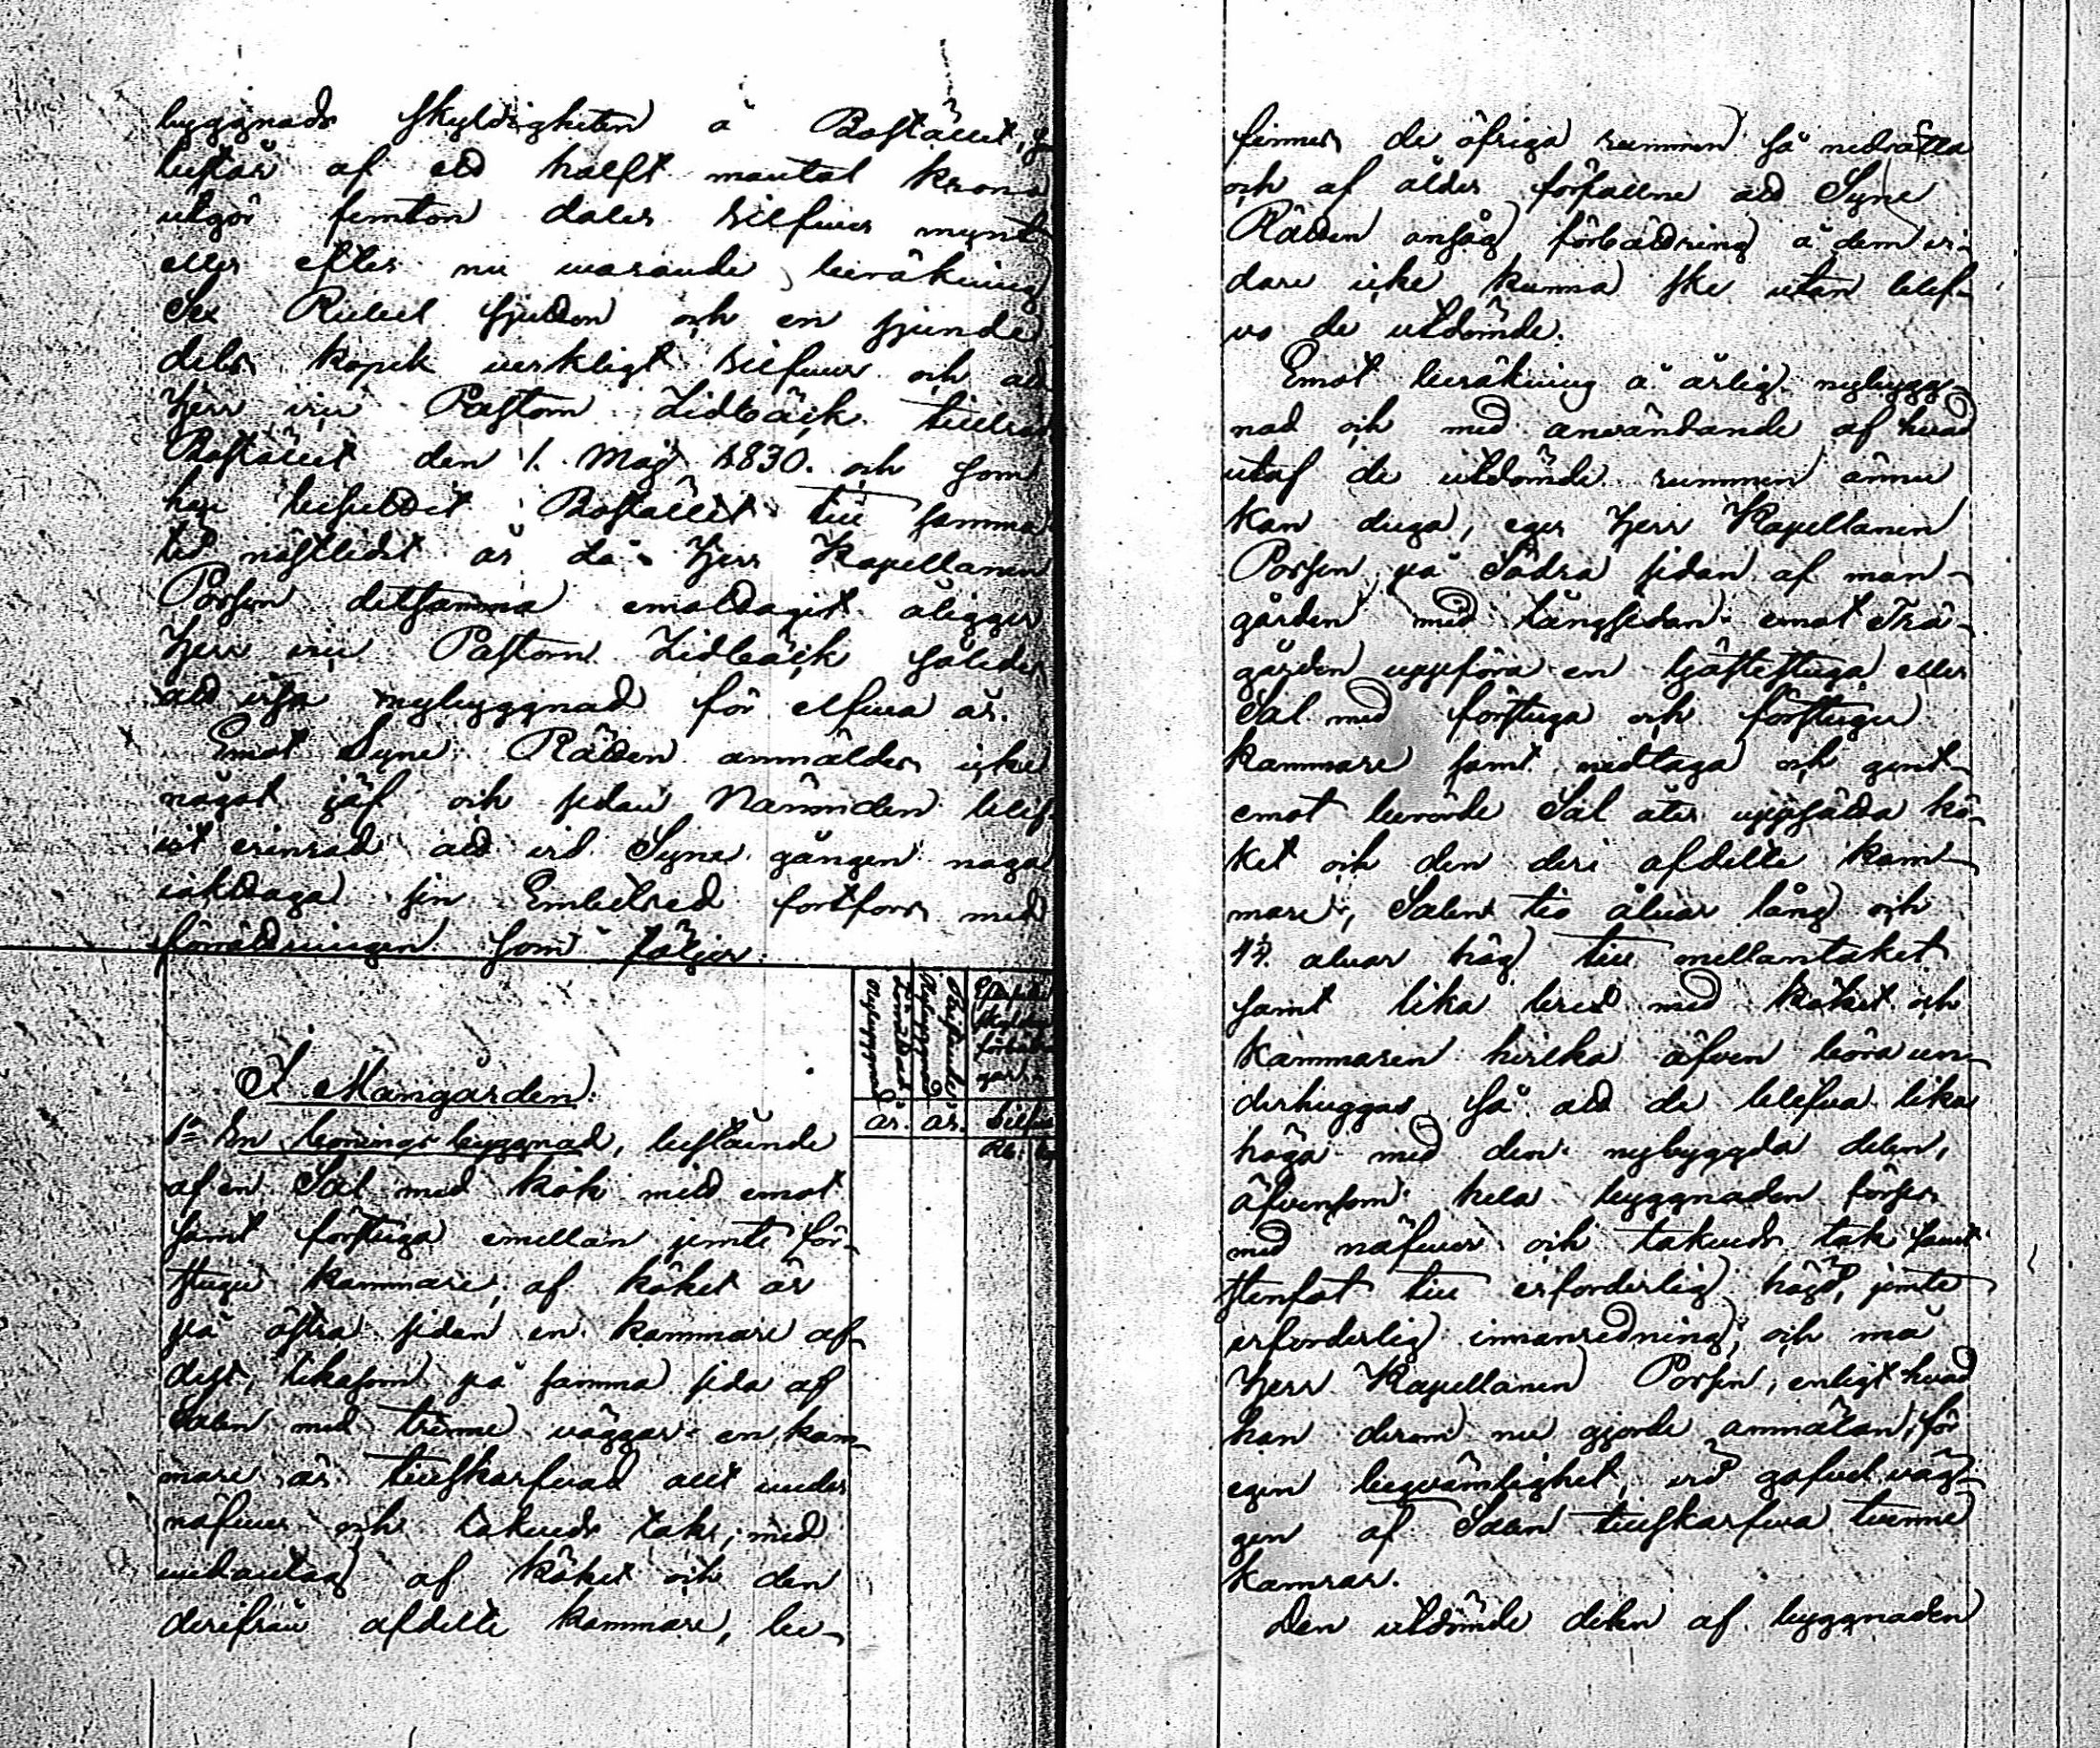 byggnads skyldigheten å Bostället,
består af ett halft mantal krono
utgör femton daler silfver mynt
eller efter nu varande beräkning
Sex Rubel sjutton och en sjunde
dels kopek verkligt silfver och att
Herr vice Pastorn Lidbäck
Bostället den 1. Maji 1830. och som
han besuttit Bostället till samma
tid nästledit år då Herr Kapellanen
Porsén detsamma emottagit åligger
Herr vice Pastorn Lidbäck således
att visa nybyggnad för elfva år.
Emot Syne Rätten anmäldes icke
något jäf och sedan Nämnden blef-
vit erinrad att vid Syne gången noga
iakttaga sin Embetsed fortfors med
förrättningen som följer:
Nybyggnad
år. år. Silfver
Rb. k
I Mangården:
1o En bonings byggnad, bestående
af en Sal med kök midt emot
samt förstuga emellan jemte för-
stugu kammare, af köket är
på östra sidan en kammare af-
delt, likasom på samma sida af
salen med trenne väggar en kam-
mare är tillskarfvad allt under
näfver och takveds tak; med
undantag af köket och den
derifrån afdelte kammare, be-
finnes de öfriga rummen så nedrötta
och af ålder förfallne att Syne
Rätten ansåg förbättring å dem vi-
dare icke kunna ske utan blef-
vo de utdömde.
Emot beräkning å årlig nybygg-
nad och med användande af hvad
utaf de utdömde rummen ännu
kan duga, eger Herr Kapellanen
Porsén på Södra sidan af man-
gården med långsidan emot Trä-
gården uppföra en gästestuga eller
Sal med förstuga och förstugu
kammare samt nedtaga och gent-
emot berörde Sal åter uppsätta kö-
ket och den deri afdelte kam-
mare, Salen tio alnar lång och
4½. alnar hög till mellantaket
samt lika bred med köket och
kammaren hvilka äfven böra un-
derhuggas så att de blefva lika
höga med den nybyggda delen,
äfvensom hela byggnaden förses
med näfver och takveds tak samt
stenfot till erforderlig högd, jemte
erforderlig innanredning; och må
Herr Kapellanen Porsén, enligt hvad
han derom nu gjorde anmälan, för
egen beqvämlighet, vid gafvel väg-
gen af Salen tillskarfva tvenne
kamrar.
Den utdömde delen af byggnaden